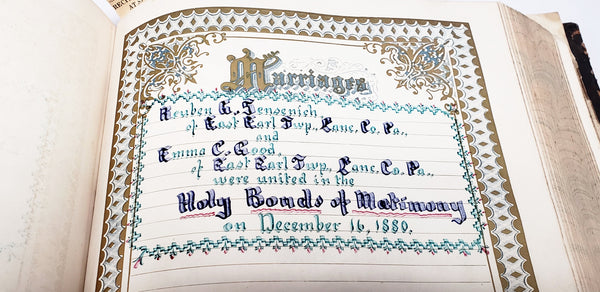 Marriages
Reuben G. Sensenich
of East Earl Twp., Lanc. Co. Pa.,
and
Emma C. Good,
of East Earl Twp., Lanc. Co. Pa.,
were united in the
Holy Bonds of Matimony
on December 16, 1880.